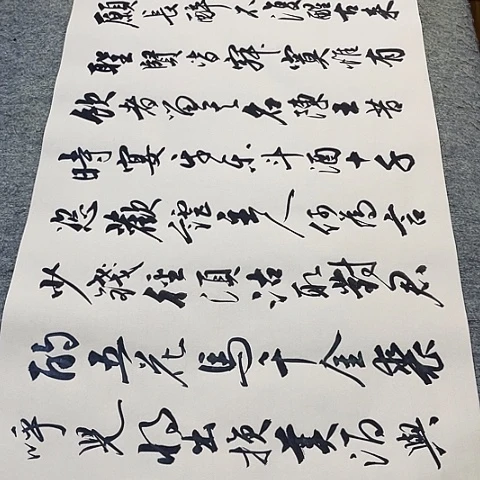 願長醉不復醒古來
聖賢皆寂寞惟有
飲者留其名陳王昔
時宴平樂斗酒十千
恣歡謔主人何為言
少錢徑須沽取對君
酌五花馬千金裘
呼兒將出換美酒與